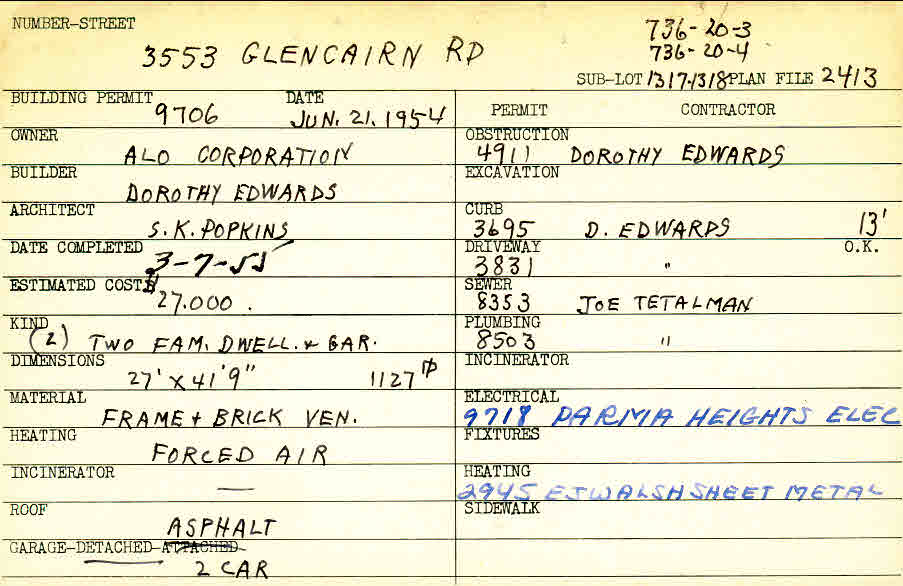 NUMBER-STREET
3553 GLENCAIRN RD
736-20-3
736-20-4
SUB-LOT 1317-1318 PLAN FILE 2413
BUILDING PERMIT DATE
9706 JUN. 21. 1954
OWNER
ALO CORPORATION
BUILDER
DOROTHY EDWARDS
ARCHITECT
S. K. POPKINS
DATE COMPLETED
3-7-55
ESTIMATED COST $
27.000.
KIND
(2) TWO FAM. DWELL. + GAR.
DIMENSIONS
27' X 41'9" 1127
MATERIAL
FRAME + BRICK VEN.
HEATING
FORCED AIR
INCINERATOR
—
ROOF
ASPHALT
GARAGE-DETACHED-ATTACHED
2 CAR
PERMIT CONTRACTOR
OBSTRUCTION
4911 DOROTHY EDWARDS
EXCAVATION
CURB
3695 D. EDWARDS 13'
DRIVEWAY O.K.
3831 "
SEWER
8353 JOE TETALMAN
PLUMBING
8503 "
INCINERATOR
ELECTRICAL
9718 PARMA HEIGHTS ELEC
FIXTURES
HEATING
2945 EJWALSH SHEET METAL
SIDEWALK